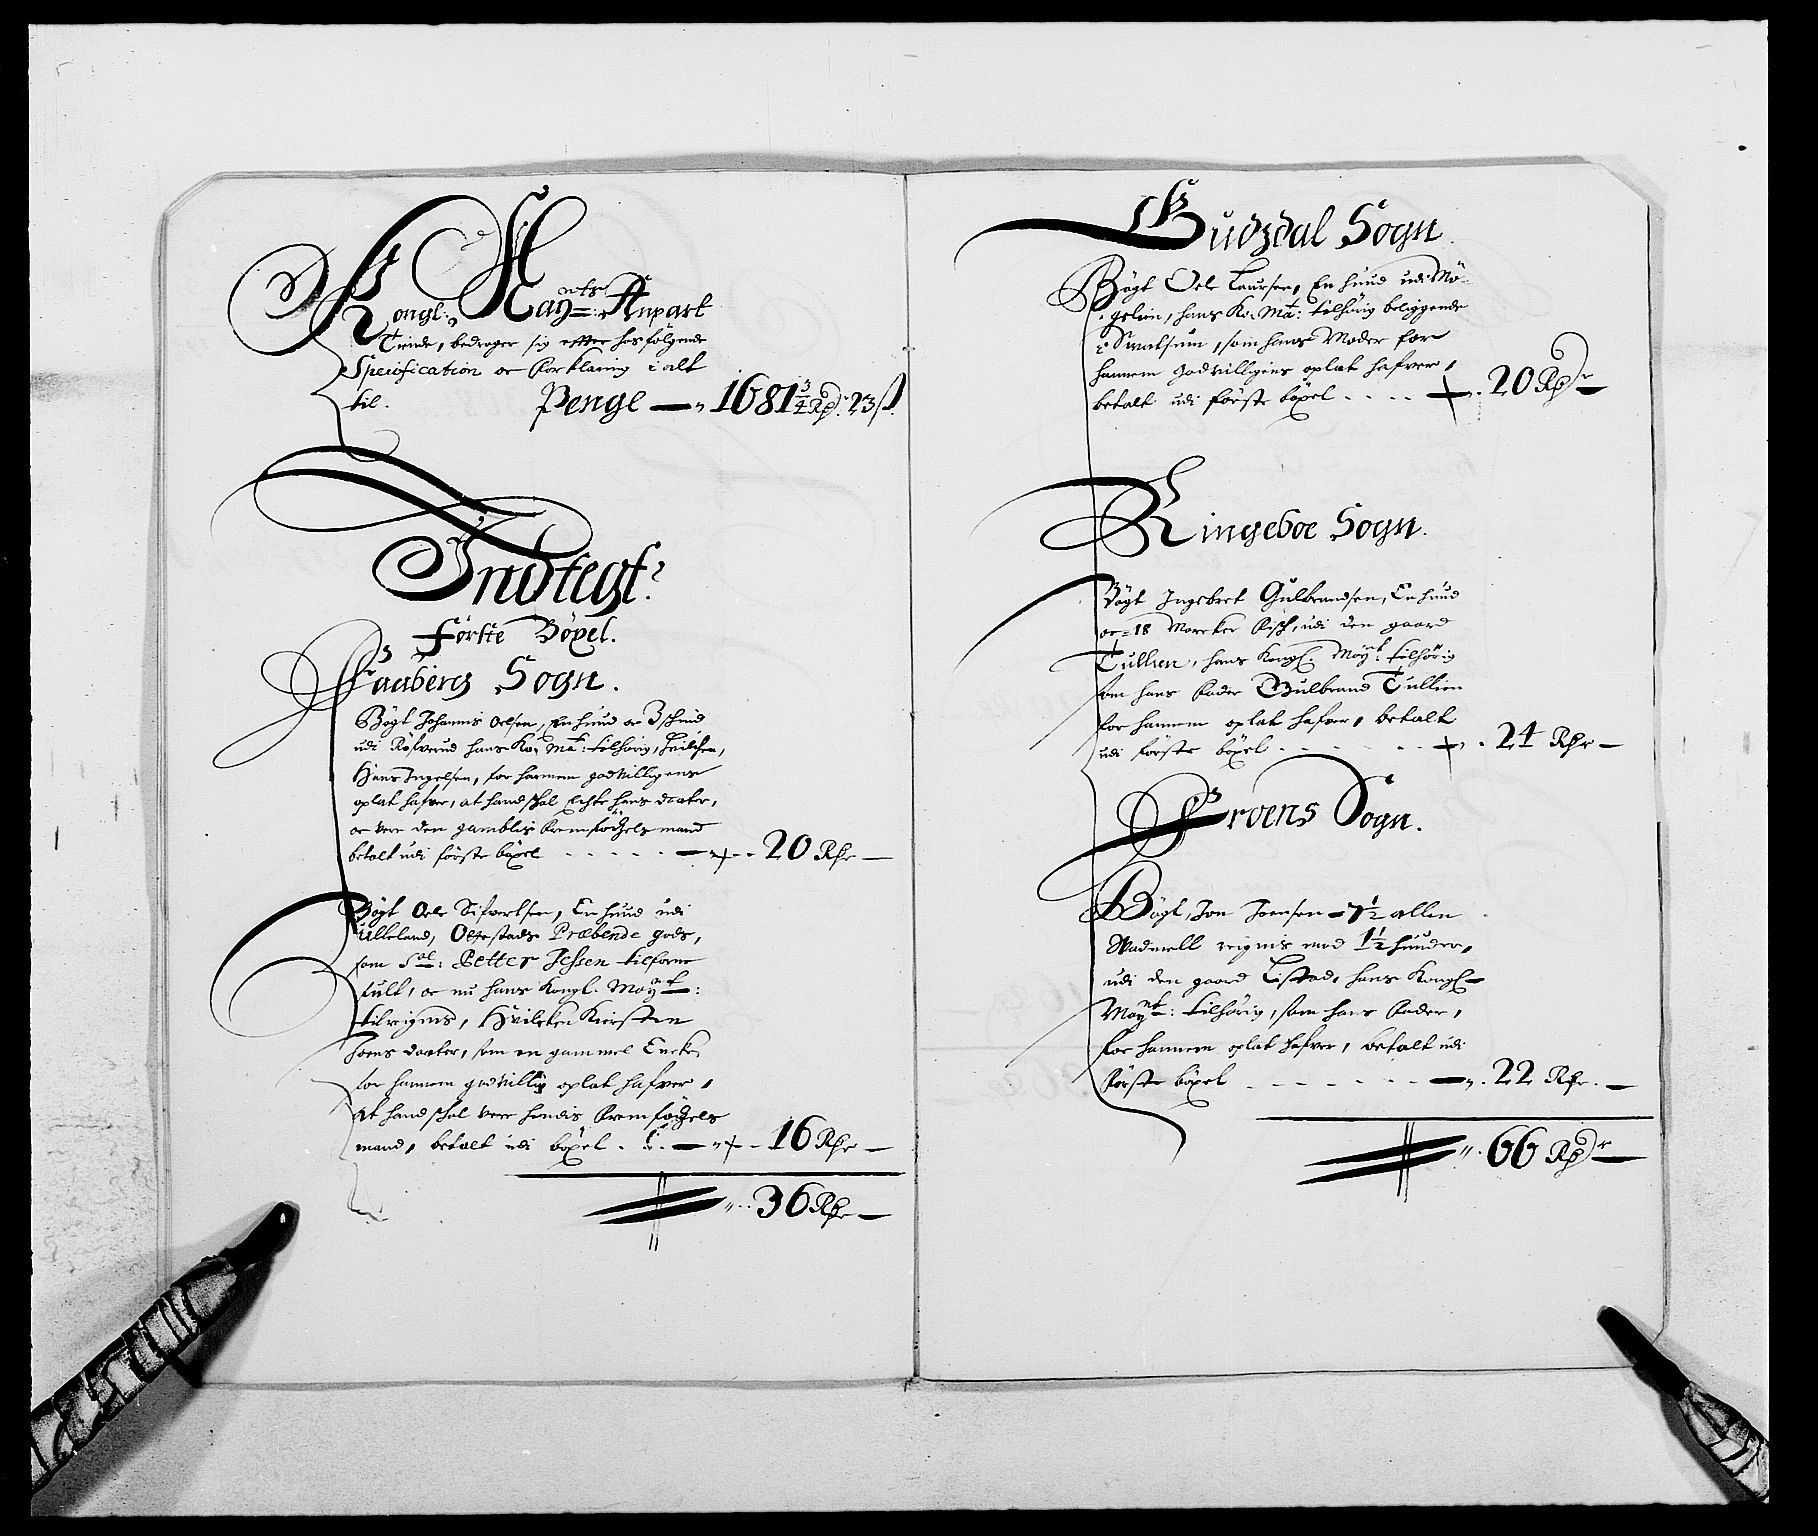 Kongl: Mayts: Anpart
Tiende, bedrager sig effter hosfølgende
Specification oc forklaring i alt
til. Penge — 1681 3/4 Rdr: 23 ß.
Indtegt:
Første Böxel.
Faaberg Sogn.
Bögt Johannis Oelsen, En hund oc 3 schind
udi hans Ko: Ma: tilhörig,
Hans Ingelsen, for hannem godvilligen
oplat hafver, at hand schal Echte hans doater,
oc vere den gamblis fremfödzels mand
betalt udi förste böxel - - - - - 20 Rdr —
Bögt Oele Sifvertsen, En hund udi
Ulleland, Præbende gods,
som Sal: Petter Jessen tilforne
fult, oc nu hans Kongl. Mayt:
tilreignis, Hvilcken Kiersten
Joens daater, som en gammel Encke,
for hannem godvillig oplat hafver,
At hand schal vere hendis fremfödzels
mand, betalt udi böxel . . — 16 Rdr —
36 Rdr —
Gudzdal Sogn.
Bögt Oele Laursen, En hund udi Mö-
gelien, hans Ko: Ma: tilhörig beliggende
i Svatsum, som hans Moder for
hannem godvilligens oplat hafver,
betalt udi förste böxel . . . . 20 Rdr —
Ringeboe Sogn.
Bögt Ingebret Gulbrandsen, En hund
oc 18 Marcker fisch, udi den gaard
Tullien, hans Kongl. Mayt: tilhörig
som hans fader Gulbrand Tullien
for hannem oplat hafver, betalt
udi förste böxel - - - - - 24 Rdr —
Froens Sogn.
Bögt, Jon Joensen 7 1/2 allen
Wadmell reignis mod 1 1/2 hunder,
udi den gaard Listad, hans Kongl
Maynt: tilhörig, som hans fader,
for hannem oplat hafver, betalt udi
förste böxel - - - - - 22 Rdr. —
66 Rdr —